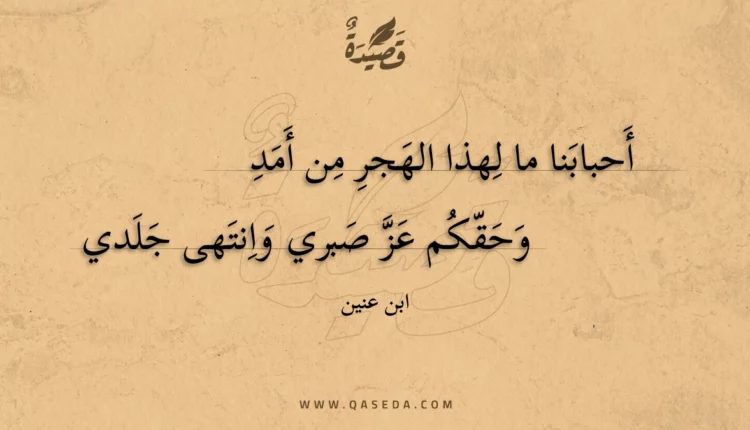 قَصِيْدَةٌ
أَحبابَنا ما لِهذا الهَجرِ مِن أَمَدِ
وَحَقّكُم عَزَّ صَبري وَاِنتَهى جَلَدي
ابن عنين
WWW.QASEDA.COM